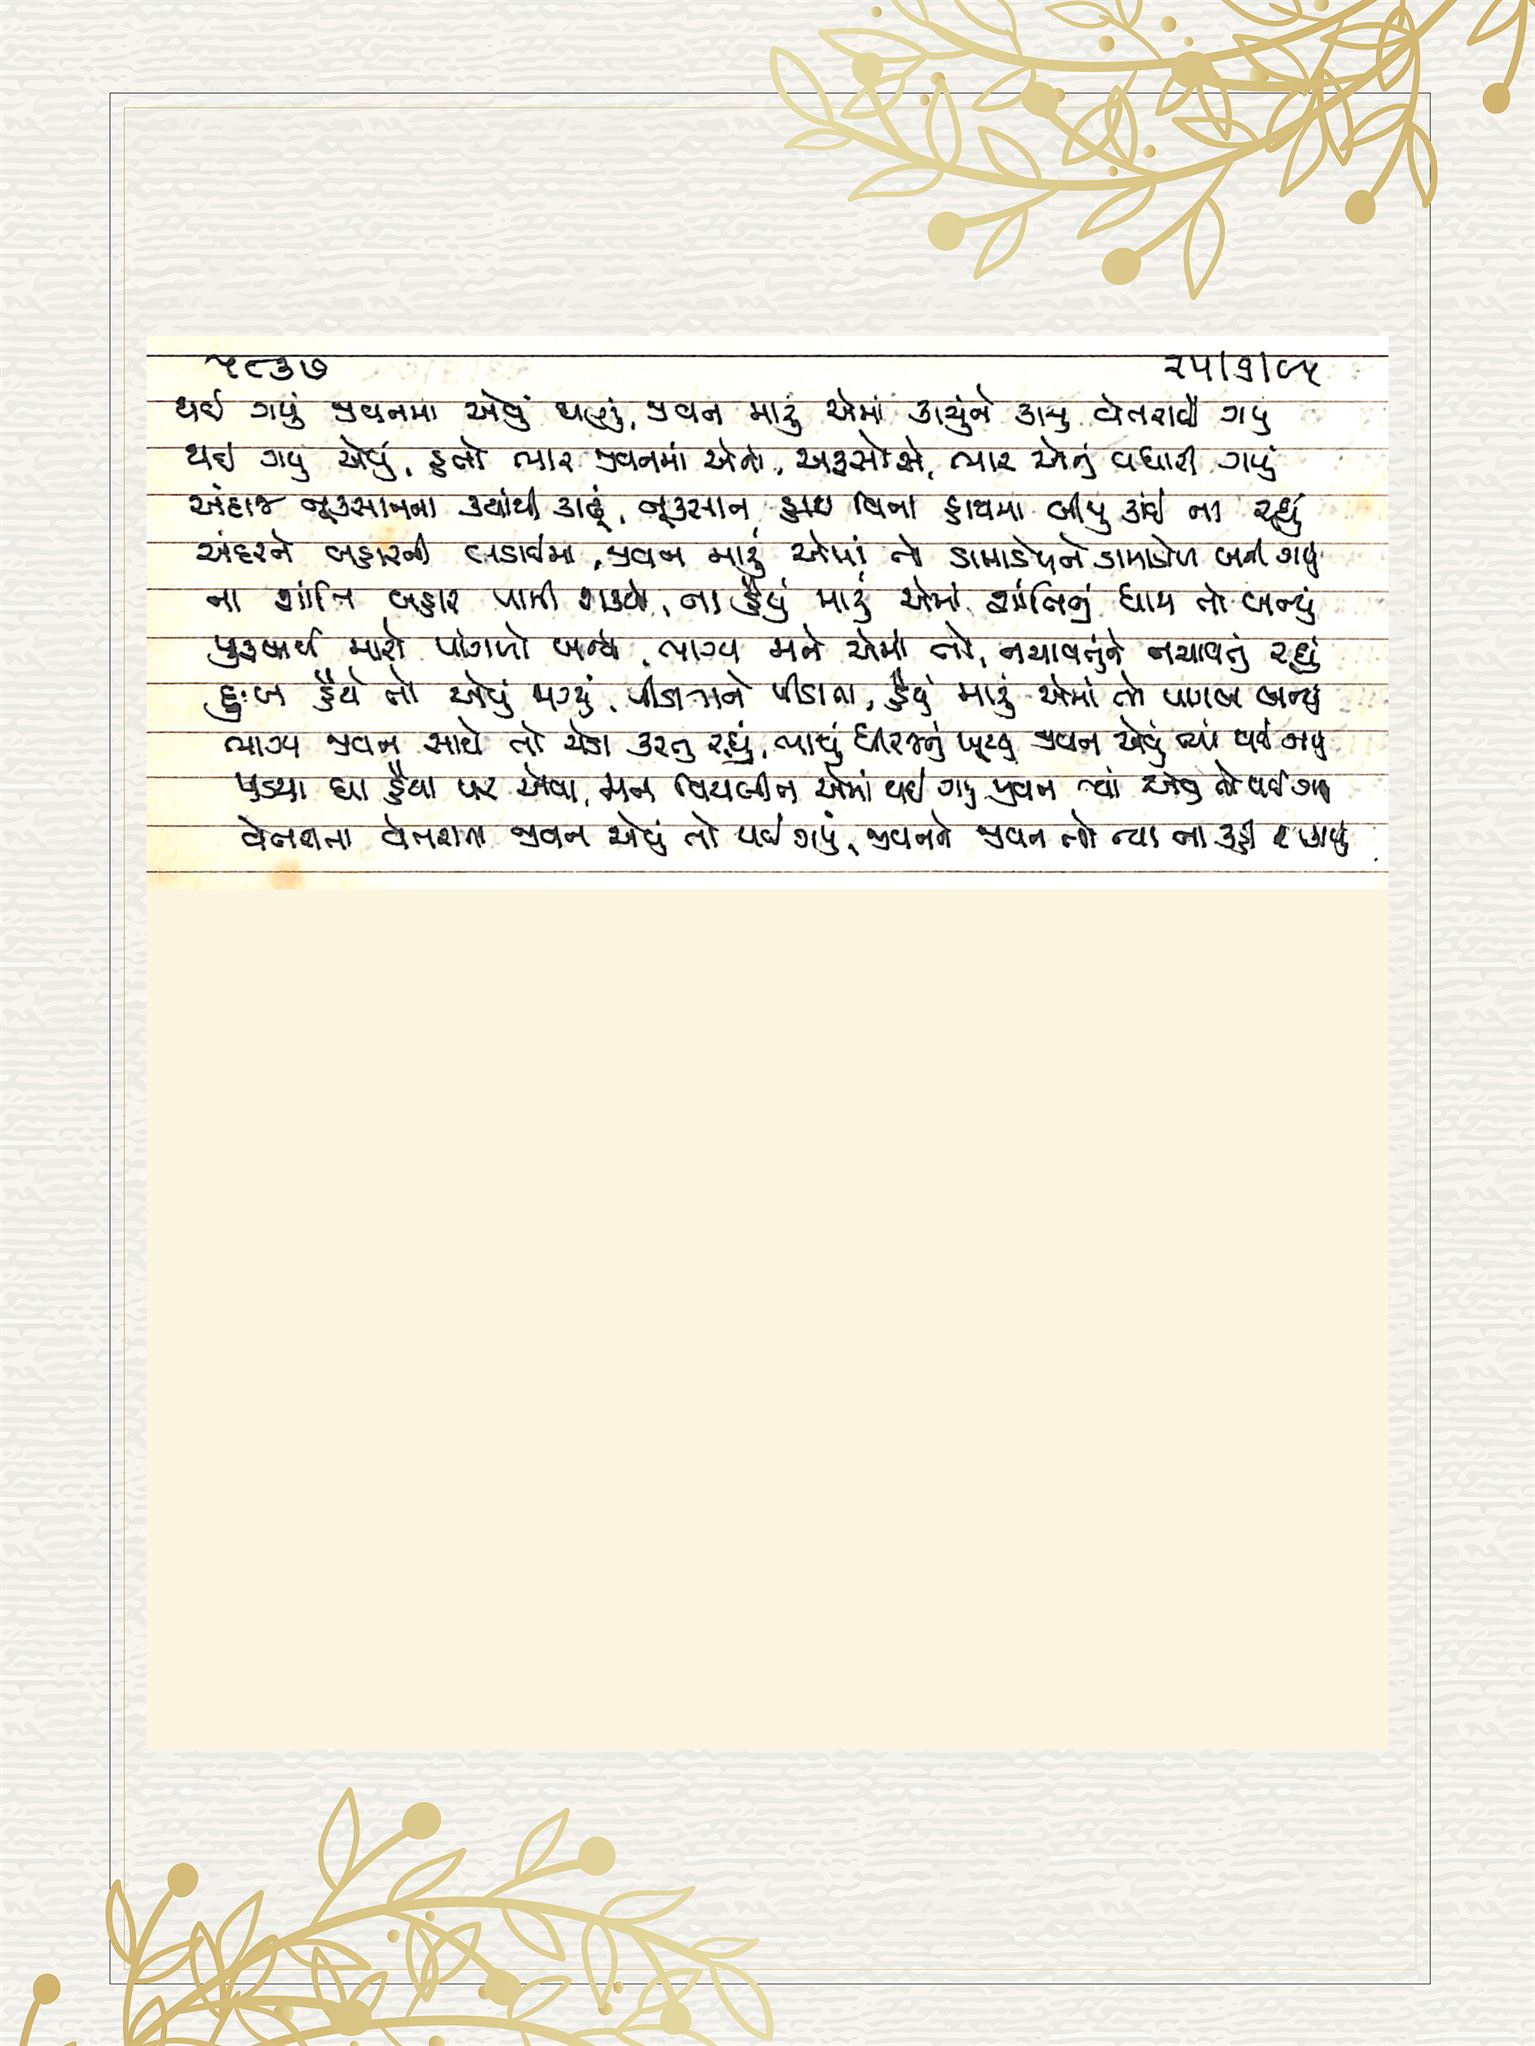 ૫૮૩૭ ૨૫/૭/૯૫
થઈ ગયું જીવનમાં એવું ઘણું, જીવન મારું એમાં કાચુંને કાચુ વેતરાઈ ગયુ
થઇ ગયુ એવું, હતો ભાર જીવનમાં એનો, અફસોસે, ભાર એનું વધારી ગયું
અંદાજ નૂકસાનના ક્યાંથી કાઢું, નૂકસાન વિના હાથમાં બીજુ કાંઇ ના રહ્યું
અંદરને બહારની લડાઈમાં, જીવન મારું એમાં તો ડામાડોળને ડામાડોળ બની ગયુ
ના શાંતિ બહાર પામી શક્યો, ના હૈયું મારું એમાં શાંતિનું ધામ તો બન્યું
પુરુષાર્થ મારો પાંગળો બન્યો, ભાગ્ય મને એમાં તો, નચાવતુંને નચાવતું રહ્યું
દુઃખ હૈયે તો એવું જાગ્યું, પીડા મને પીડાતા, હૈયું મારું એમાં તો પાગલ બન્યુ
ભાગ્ય જીવન સાથે તો ચેડા કરતુ રહ્યું, ભાથું ધીરજનું ખૂટ્યુ જીવન એવું ત્યાં થઈ ગયુ
પડ્યા ઘા હૈયા પર એવા, મન વિચલીત એમાં થઇ ગયુ જીવન ત્યાં એવુ તો થઈ ગયુ
વેતરાતા વેતરાતા જીવન એવું તો થઈ ગયું, જીવનને જીવન તો ત્યાં ના કહી શકાયું